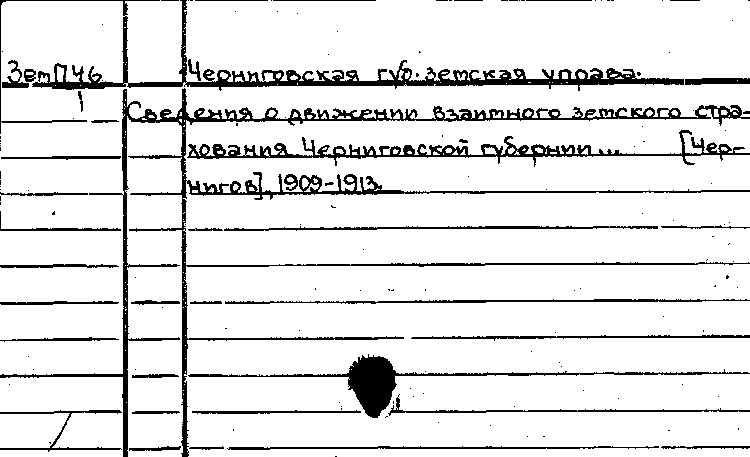 ЗемП46 Черниговская губ. земская управа.
1 Сведения о движении взаимного земского стра-
хования Черниговской губернии... [Чер-
нигов], 1909-1913.